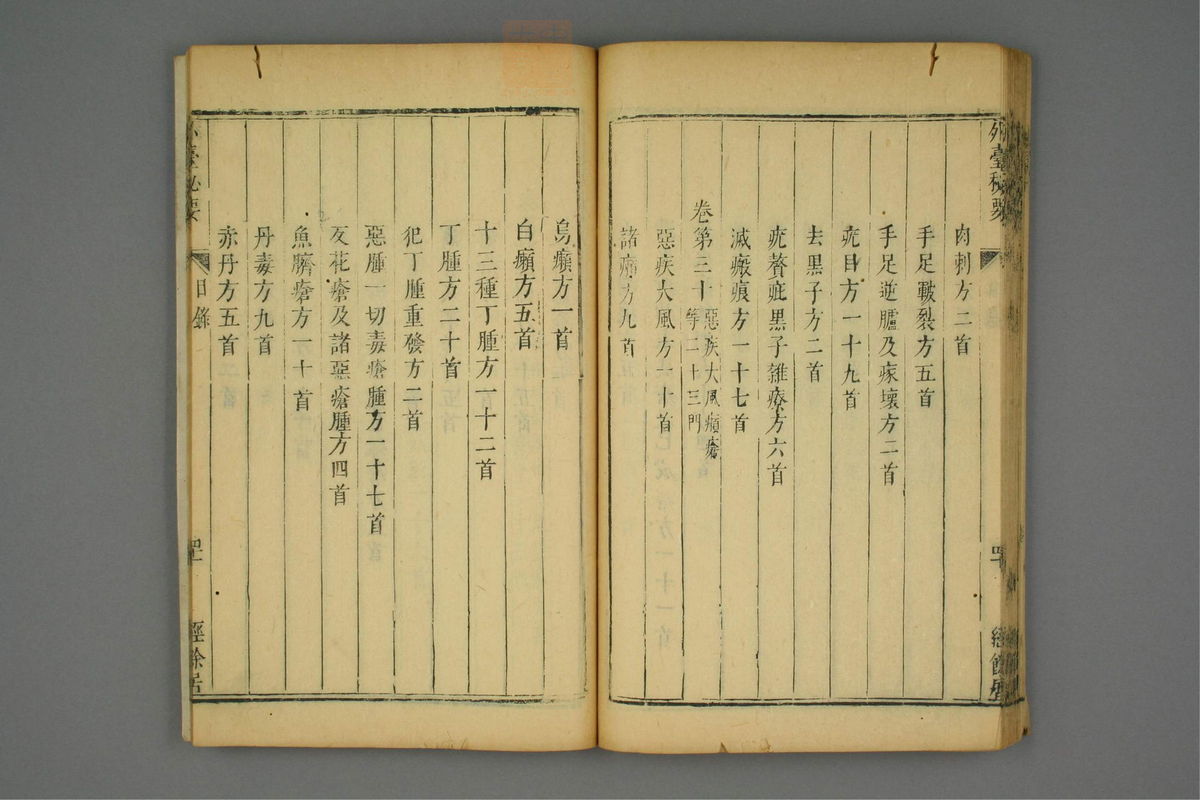 外臺秘要
肉刺方二首
手足皸裂方五首
手足逆臚及瘃壞方二首
疣目方一十九首
去黑子方二首
疣贅疵黑子雜療方六首
滅瘢痕方一十七首
卷第三十
惡疾大風癩瘡
等二十三門
惡疾大風方一十首
諸癩方九首
烏癩方一首
白癩方五首
十三種丁腫方一十二首
丁腫方二十首
犯丁腫重發方二首
惡腫一切毒瘡腫方一十七首
反花瘡及諸惡瘡腫方四首
魚臍瘡方一十首
丹毒方九首
赤丹方五首
外臺秘要
目錄
經餘居